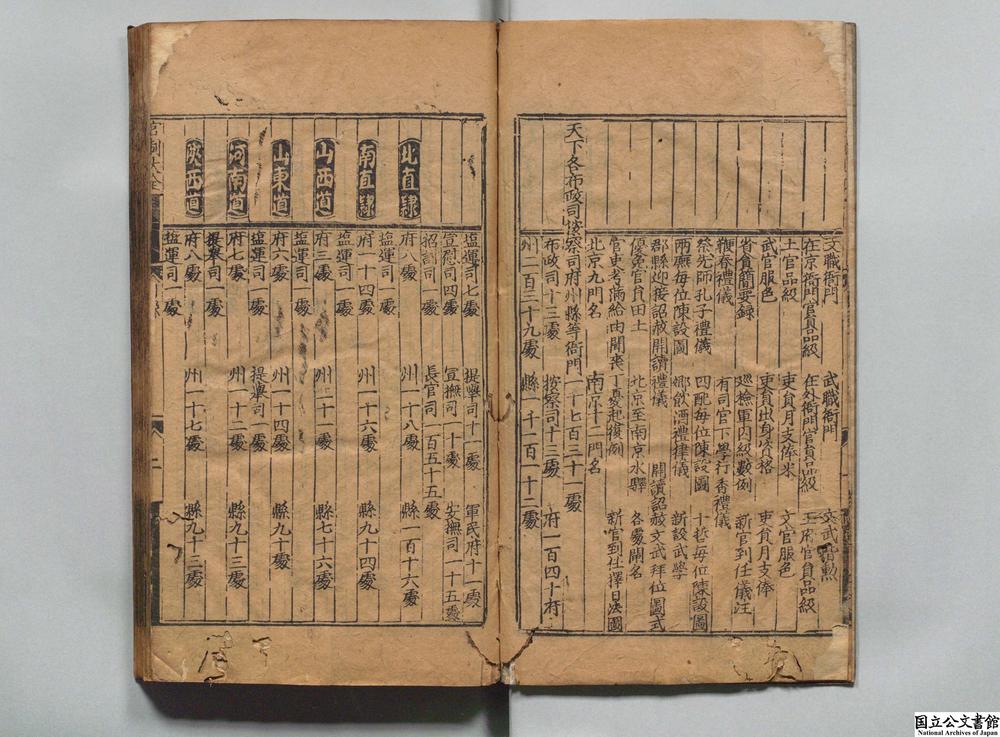 文職衙門 武職衙門 文武官勲
在京衙門官員品級 在外衙門官員品級 王府官員品級
土官品級 吏員月支俸米 文官服色
武官服色 吏員出身資格 吏員月支俸
省貪簡要録 巡檢軍囚級數例 新官到任儀注
鞭春禮儀 有司官下學行香禮儀
祭先師孔子禮儀 四配每位陳設圖 十哲每位陳設圖
兩廡每位陳設圖 鄉飲酒禮律儀 新設武學
郡縣迎接詔赦開讀禮儀 開讀詔赦文武拜位圖式
優免官員田土 北京至南京水驛 各處關名
官吏考滿給由聞喪丁憂起復例 新官到任擇日法圖
北京九門名 南京十二門名
天下各布政司按察司府州縣等衙門一千七百三十一處
布政司十三處 按察司十三處 府一百四十府
州二百三十九處 縣一千百一十二處
塩運司七處 提舉司十一處 軍民府十一處
宣慰司四處 宣撫司一十處 安撫司一十五處
招討司一處 長官司一百五十五處
北直隸 府八處 州一十八處 縣一百十六處
塩運司一處
南直隸 府一十四處 州一十六處 縣九十四處
塩運司一處
山西道 府三處 州二十一處 縣七十六處
塩運司一處
山東道 府六處 州一十四處 縣九十處
塩運司一處 提舉司一處
河南道 府七處 州一十二處 縣九十三處
提舉司一處
陝西道 府八處 州一十七處 縣九十三處
塩運司一處
国立公文書館
National Archives of Japan